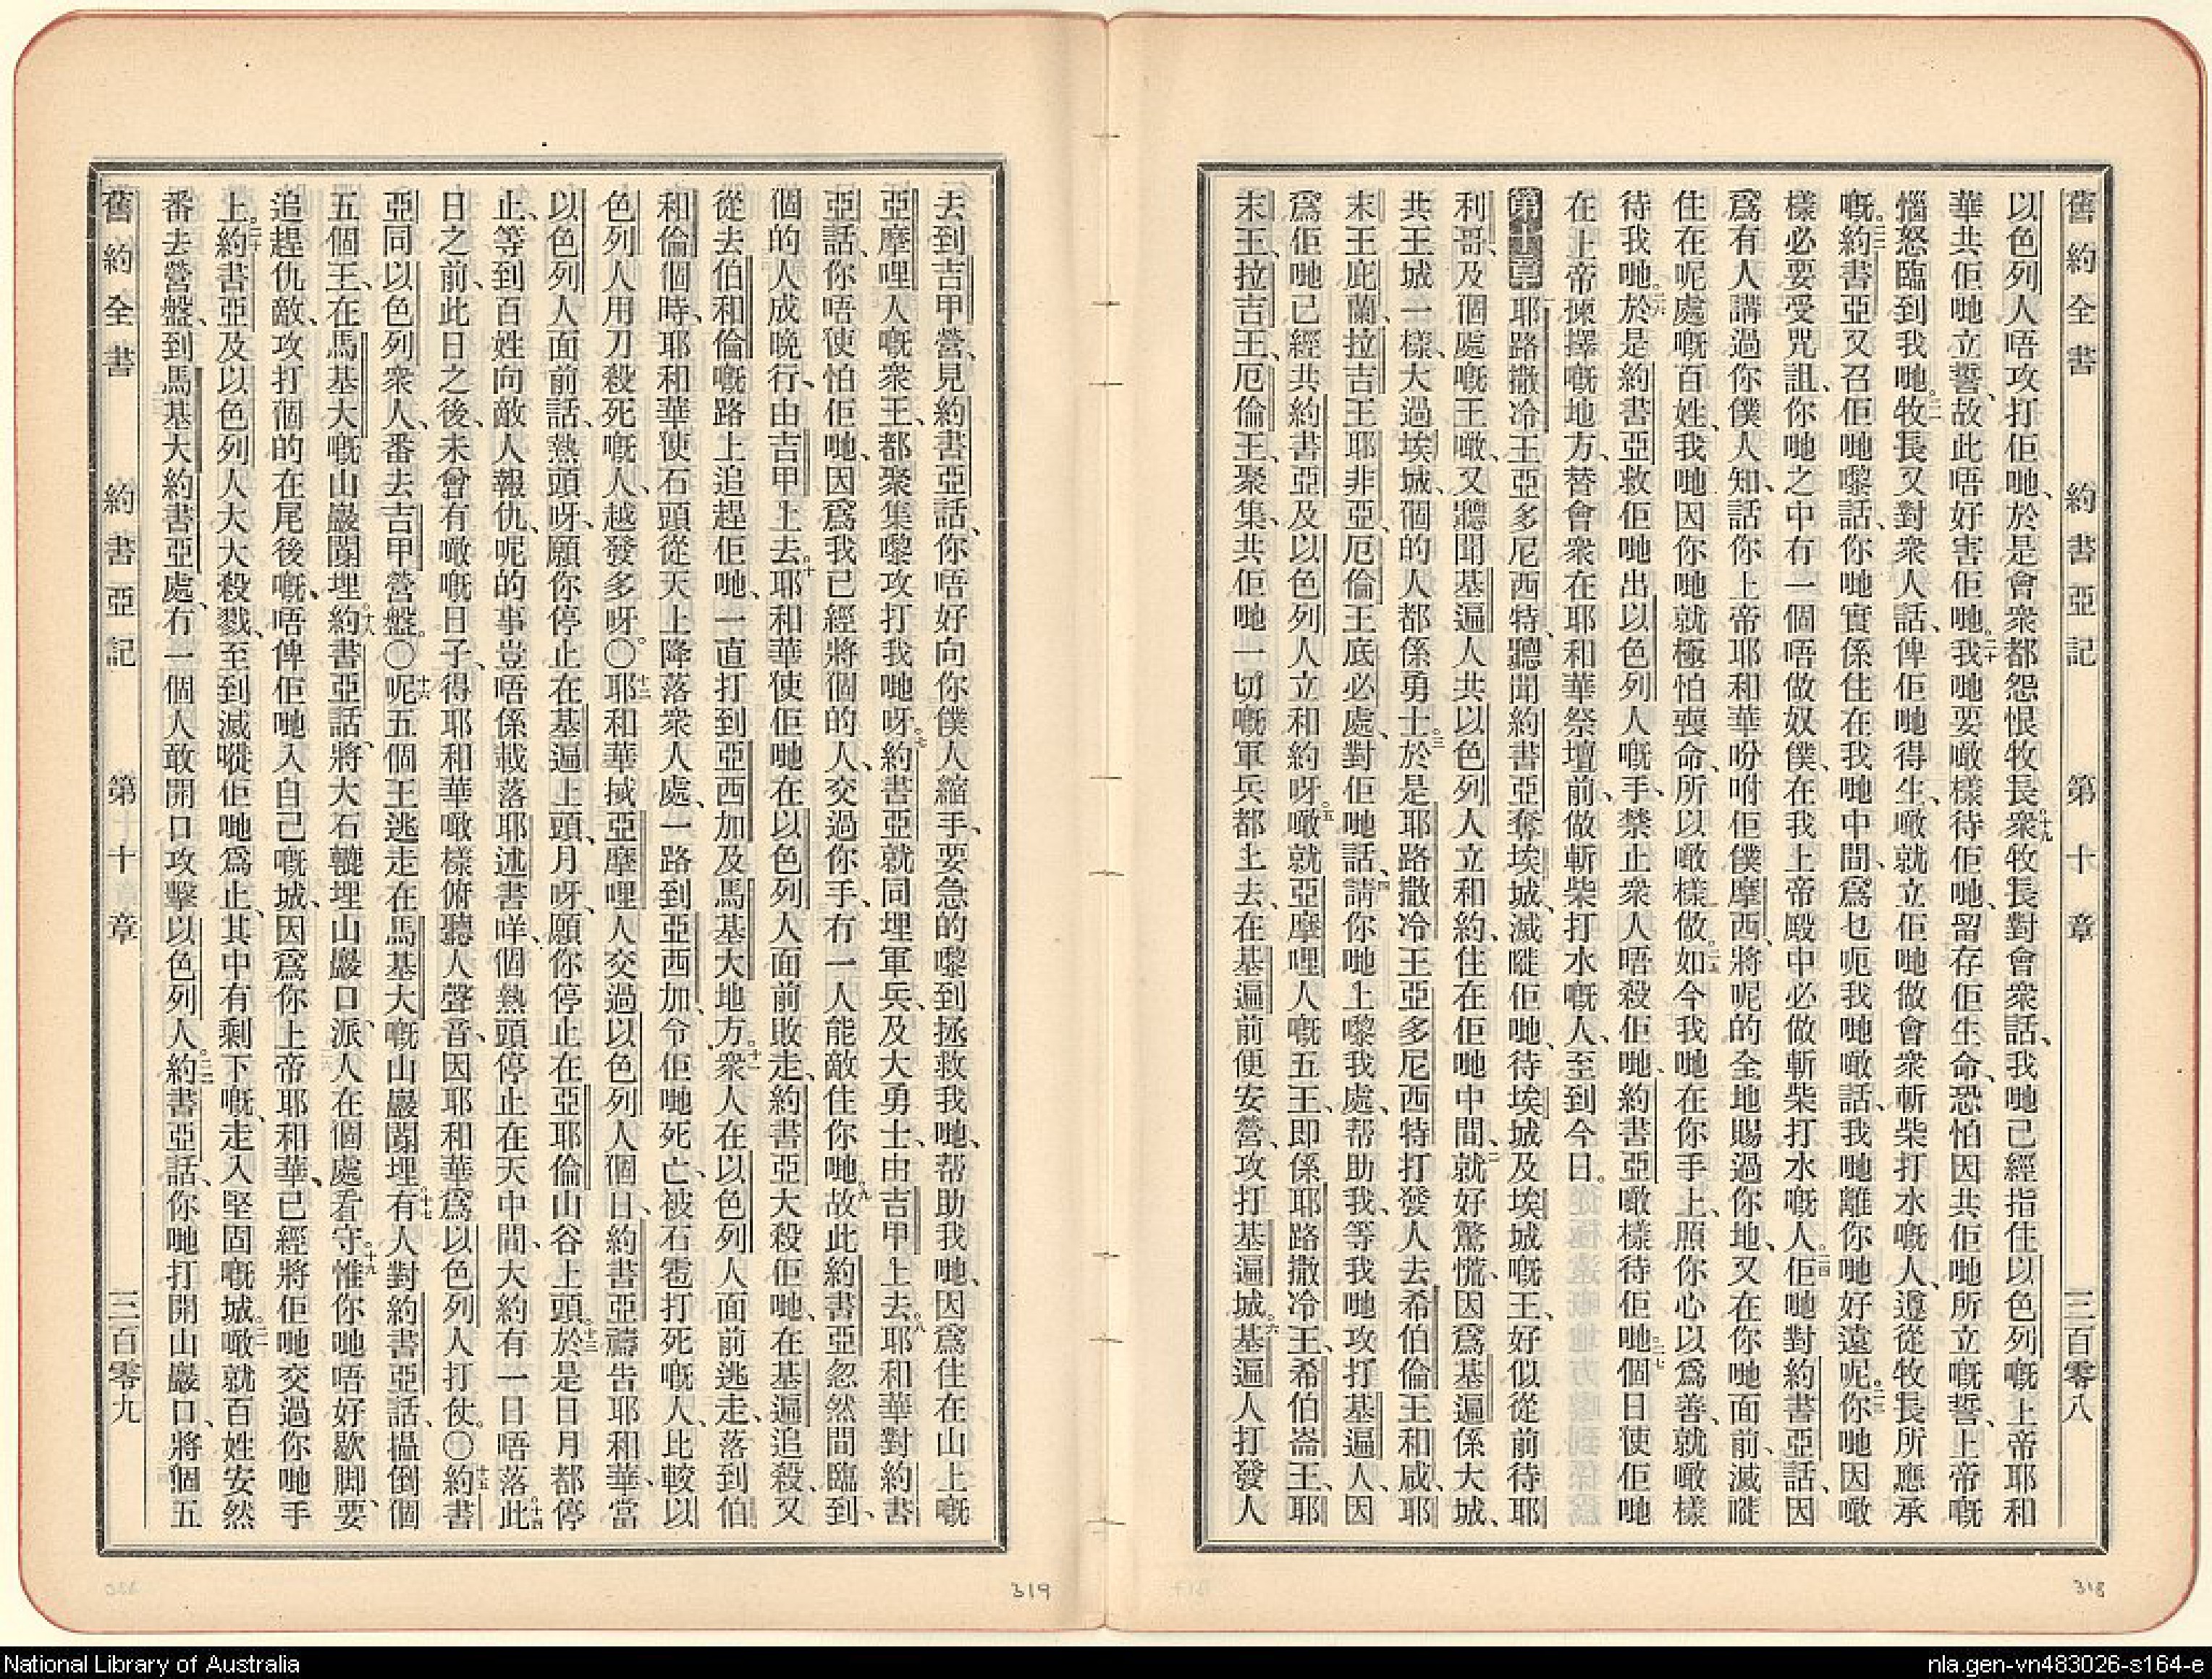 舊約全書 約書亞記 第十章 三百零八
以色列人唔攻打佢哋、於是會衆都怨恨牧長。十九衆牧長對會衆話、我哋已經指住以色列嘅上帝耶和
華共佢哋立誓、故此唔好害佢哋。二十我哋要噉樣待佢哋、留存佢生命、恐怕因共佢哋所立嘅誓、上帝嘅
惱怒臨到我哋。二一牧長又對衆人話、俾佢哋得生、噉就立佢哋做會衆斬柴打水嘅人、遵從牧長所應承
嘅。二二約書亞又召佢哋嚟話、你哋實係住在我哋中間、爲乜呃我哋噉話、我哋離你哋好遠呢。二三你哋因噉
樣必要受咒詛、你哋之中有一個唔做奴僕、在我上帝殿中必做斬柴打水嘅人。二四佢哋對約書亞話、因
爲有人講過你僕人知、話你上帝耶和華吩咐佢僕摩西、將呢的全地賜過你地、又在你哋面前、滅嘥
住在呢處嘅百姓、我哋因你哋就極怕喪命、所以噉樣做。二五如今我哋在你手上、照你心以爲善、就噉樣
待我哋。二六於是約書亞救佢哋出以色列人嘅手、禁止衆人唔殺佢哋、約書亞噉樣待佢哋。二七個日使佢哋
在上帝揀擇嘅地方、替會衆在耶和華祭壇前、做斬柴打水嘅人、至到今日。
第十章 一耶路撒冷王亞多尼西特、聽聞約書亞奪埃城、滅嘥佢哋、待埃城及埃城嘅王、好似從前待耶
利哥、及個處嘅王噉、又聽聞基遍人共以色列人立和約、住在佢哋中間、二就好驚慌、因爲基遍係大城、
共王城一樣、大過埃城、個的人都係勇士。三於是耶路撒冷王亞多尼西特打發人去希伯倫王和咸、耶
末王庇蘭、拉吉王耶非亞、厄倫王底必處、對佢哋話、四請你哋上嚟我處、帮助我、等我哋攻打基遍人、因
爲佢哋已經共約書亞及以色列人立和約呀。五噉就亞摩哩人嘅五王、卽係耶路撒冷王、希伯崙王、耶
末王、拉吉王、厄倫王、聚集、共佢哋一切嘅軍兵都上去、在基遍前便安營、攻打基遍城。六基遍人打發人
318
去到吉甲營、見約書亞話、你唔好向你僕人縮手、要急的嚟到拯救我哋、帮助我哋、因爲住在山上嘅
亞摩哩人嘅衆王、都聚集嚟攻打我哋呀。七約書亞就同埋軍兵、及大勇士、由吉甲上去。八耶和華對約書
亞話、你唔使怕佢哋、因爲我已經將個的人、交過你手、冇一人能敵住你哋。九故此約書亞忽然間臨到、
個的人成晚行、由吉甲上去。十耶和華使佢哋在以色列人面前敗走、約書亞大殺佢哋、在基遍追殺、又
從去伯和倫嘅路上追趕佢哋、一直打到亞西加及馬基大地方。十一衆人在以色列人面前逃走、落到伯
和倫個時、耶和華使石頭從天上降落衆人處、一路到亞西加、令佢哋死亡、被石雹打死嘅人、比較以
色列人用刀殺死嘅人、越發多呀。〇十二耶和華搣亞摩哩人交過以色列人個日、約書亞禱告耶和華、當
以色列人面前話、熱頭呀、願你停止在基遍上頭、月呀、願你停止在亞耶倫山谷上頭。十三於是日月都停
止、等到百姓向敵人報仇、呢的事豈唔係載落耶述書咩、個熱頭停止在天中間、大約有一日唔落。十四此
日之前、此日之後、未曾有噉嘅日子、得耶和華噉樣俯聽人聲音、因耶和華爲以色列人打仗。〇十五約書
亞同以色列衆人、番去吉甲營盤。〇十六呢五個王逃走在馬基大嘅山巖閟埋。十七有人對約書亞話、揾倒個
五個王、在馬基大嘅山巖閟埋。十八約書亞話、將大石轆埋山巖口、派人在個處看守。十九惟你哋唔好歇脚、要
追趕仇敵、攻打個的在尾後嘅、唔俾佢哋入自己嘅城、因爲你上帝耶和華、已經將佢哋交過你哋手
上。二十約書亞及以色列人大大殺戮、至到滅嘥佢哋爲止、其中有剩下嘅、走入堅固嘅城。二一噉就百姓安然
番去營盤、到馬基大約書亞處、冇一個人敢開口攻擊以色列人。二二約書亞話、你哋打開山巖口、將個五
舊約全書 約書亞記 第十章 三百零九
319
National Library of Australia
nla.gen-vn483026-s164-e